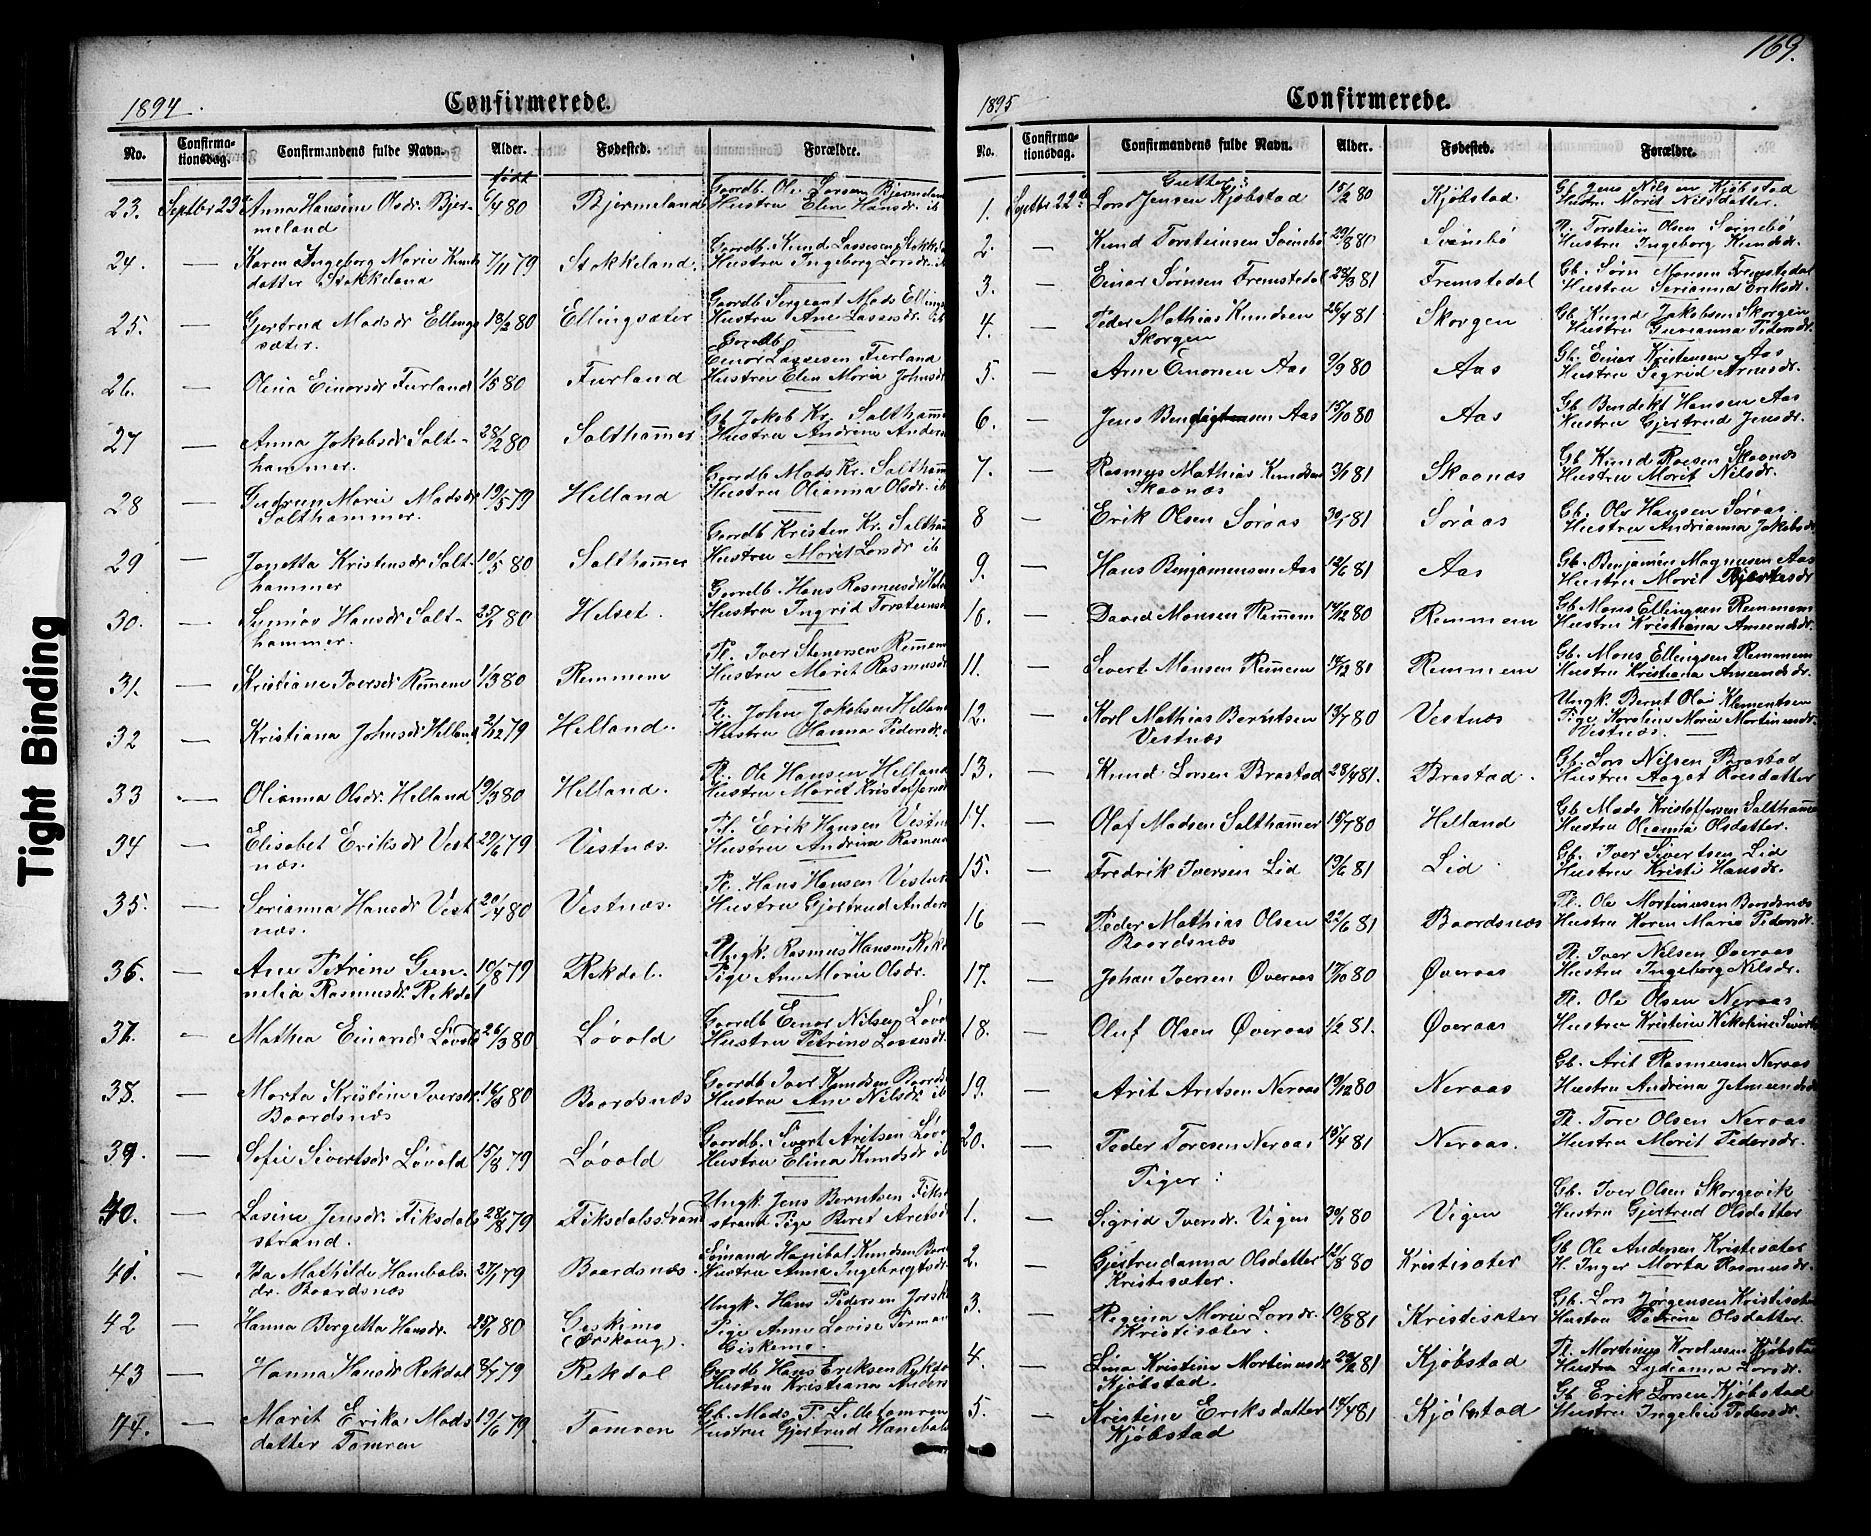 169.
1894.
Confirmerede.
No.
Confirma-
tionsdag.
Confirmandens fulde Navn.
Alder.
født
Fødested.
Forældre.
23. Septbr 23de Anna Hansine Olsdr. Bjer- 6/4 80 Bjermeland Gaardb. Ole Larsen Bjermeland
meland Hustru Elen Hansdr. ib
24. — Karen Ingeborg Marie Knuds 7/11 79 Stokkeland. Gaardb. Knud Lassesen Stokke
datter Stokkeland Hustru Ingeborg Larsdr. ib
25. — Gjertrud Madsdr Ellings 13/2 80 Ellingsæter Gaardb Sergeant Mads Ellings
sæter. Hustru Ane Lassesdr. ib
26. — Olina Einarsdr Furland 1/5 80 Furland Gaardb
Einar Lassesen Furland
Hustru Elen Marie Johnsdr
27 — Anna Jakobsdr Salt- 28/2 80 Salthammer Gb Jakob Kr. Salthammer
hammer. Hustru Andrine Anders
28 — Gudrun Marie Madsdr 19/5 79 Helland Gaardb Mads Kr. Salthamm
Salthammer. Hustru Olianna Olsdr. ib
29 — Jonetta Kristensdr Salt- 10/5 80 Salthammer Gaardb Kristen Kr. Salthamm
hammer Hustru Marit Larsdr ib
30. — Sunnøv Hansdr Salt- 25/1 80 Helset. Gaardb. Hans Rasmusdr
hammer. Hustru Ingrid Torsteinsd
31. — Kristiane Iversdr Remmem 1/3 80 Remmem Pl. Iver Stenersen Remmem
Hustru Marit Rasmusdr
32 — Kristiana Johnsdr Helland 2/12 79 Helland. Pl. John Jakobsen Helland
Hustru Hanna Pedersdr.
33 — Olianna Olsdr. Helland 19/3 80 Helland. Pl. Ole Hansen Helland
Hustru Marit Kristoffersd
34 — Elisabet Eriksdr Vest 29/6 79 Vestnæs. Pl. Erik Hansen Vestn
næs. Hustru Andrina Rasmus
35. — Serianna Hansdr Vest 20/4 80 Vestnæs. Pl. Hans Hansen Vestn
næs. Hustru Gjertrud Anders
36. — Ane Petrine Gun- 10/8 79 Rekdal. Ungk. Rasmus Hansen Rek
nelia Rasmusdr. Rekdal Pige Ane Marie Olsdr.
37. — Mathea Einarsd Løvold 26/3 80 Løvold Gaardb Einar Nilsen Løvo
Hustru Petrine Lassesdr.
38. — Marta Kristine Iversdr 16/4 80 Baardsnæs Gaardb Iver Knudsen Baards
Baardsnæs Hustru Ane Nilsdr ib
39. — Sofie Sivertsdr Løvold 15/8 79 Løvold Gaardb. Sivert Aritsen Løvo
Hustru Elina Knudsdr ib
40. — Lasine Jensdr. Fiksdals 28/8 79 Fiksdalsstrand Ungk Jens Berntsen Fiksd
strand. strand Pige Beret Aretsd
41. — Ida Mathilde Hanibals- 27/1 79 Baardsnæs. Sømand Hanibal Knudsen Baar
dr. Baardsnæs Hustru Anna Ingebrigtsdr
42 — Hanna Bergetta Hansdr. 25/1 80 Geskimo Ungk. Hans Pedersen
(Ørskoug). Pige Anne Lovise
Giskemo.
43 — Hanna Hansdr Rekdal 8/7 79 Rekdal Gaardb Hans Eriksen Rekda
Hustru Kristiana Anders
44. — Marit Erika Mads 19/6 79. Tomren Gb. Mads P. Lilletomren
datter Tomren Hustru Gjertrud Hanibals
1895
Confirmerede.
No.
Confirma-
tionsdag.
Confirmandens fulde Navn.
Alder.
Fødested.
Forældre.
Gutter:
1. Septbr 22de Lars Jensen Kjøbstad 15/2 80 Kjøbstad Gb. Jens Nilsen Kjøbstad
Hustru Marit Nilsdatter.
2. — Knud Torsteinsen Svinebø 29/8 80 Svinebø Pl. Torstein Olsen Svinebø
Hustru Ingeborg Knudsdr.
3. — Einar Sørnsen Fremstedal 28/3 81 Fremstedal Gb. Sørn Monsen Fremstedal
Hustru Serianna Eriksdr.
4. — Peder Mathias Knudsen 26/4 81 Skorgen Gb Knud Jakobsen Skorgen
Skorgen Hustru Gurianna Pedersdr.
5. — Arne Einarsen Aas 9/9 80 Aas Gb. Einar Kristensen Aas
Hustru Sigrid Arnesdr.
6. — Jens Bendigtsen Aas 15/10 80 Aas Gb Bendikt Hansen Aas
Hustru Gjertrud Jensdr.
7. — Rasmus Mathias Knudsen 3/1 81 Skaanæs Gb Knud Roesen Skaanæs
Skaanæs Hustru Marit Nilsdr.
8 — Erik Olsen Søraas 30/1 81 Søraas Gb. Ole Hansen Søraas.
Hustru Andrianna Jakobsdr
9. — Hans Benjaminsen Aas 12/6 81 Aas Gb. Benjamin Magnusen Aas
Hustru Marit
10. — David Monsen Remmem 17/12 80 Remmem Gb. Mons Ellingsen Remmem
Hustru Kristiana Amundsdr.
11. — Sivert Monsen Remmem 17/12 81 Remmem Gb. Mons Ellingsen Remmem
Hustru Kristiana Amundsdr.
12. — Karl Mathias Berntsen 13/7 80 Vestnæs Ungk. Bernt Olai Klementsen
Vestnæs Pige Karoline Marie Martinusdr.
Vestnæs.
13. — Knud Larsen Brastad 28/4 81. Brastad. Gb. Lars Nilsen Brastad
Hustru Aagot Roesdatter
14. — Olaf Madsen Salthammer 15/7 80 Helland Gb. Mads Kristoffersen Salthammer
Hustru Olianna Olsdatter.
15. — Fredrik Iversen Lid 19/6 81 Lid Gb. Iver Sivertsen Lid
Hustru Kristi Hansdr.
16 — Peder Mathias Olsen 22/6 81 Baardsnæs Pl. Ole Martinusen Baardsnæs
Baardsnæs Hustru Karen Maria Pedersdr.
17. — Johan Iversen Øveraas 17/10 80 Øveraas Pl. Iver Nilsen Øveraas
Hustru Ingeborg Nilsdr.
18. — Oluf Olsen Øveraas 1/2 81. Øveraas Pl. Ole Olsen Neraas
Hustru Kristine Nikoline Sivertsd
19. — Arit Aritsen Neraas 19/12 80 Neraas Gb. Arit Rasmusen Neraas
Hustru Andrina J Amundsdr
20. — Peder Toresen Neraas 15/4 81 Neraas. Pl. Tore Olsen Neraas
Hustru Marit Pedersdr.
Piger:
1. — Sigrid Iversdr. Vigen 30/1 80 Vigen Gb. Iver Olsen Skorgevik
Hustru Gjertrud Olsdatter
2. — Gjertrudanna Olsdatter 12/8 80 Kristisæter Gb Ole Andersen Kristisæter
Kristisæter. H. Inger Marta Rasmusdr.
3. — Regina Marie Larsdr. 10/8 81 Kristisæter Gb. Lars Jørgensen Kristisæter
Kristisæter. Hustru Petrine Olsdatter
4. — Lina Kristine Martinusdr 20/2 81 Kjøbstad Pl. Martinus Karolusen Kjøbstad
Kjøbstad. Hustru Lydianna Larsdr.
5. — Kristine Eriksdatter 18/4 81 Kjøbstad Gb. Erik Larsen Kjøbstad
Kjøbstad Hustru Ingeleiv Pedersdr.
Tight Binding